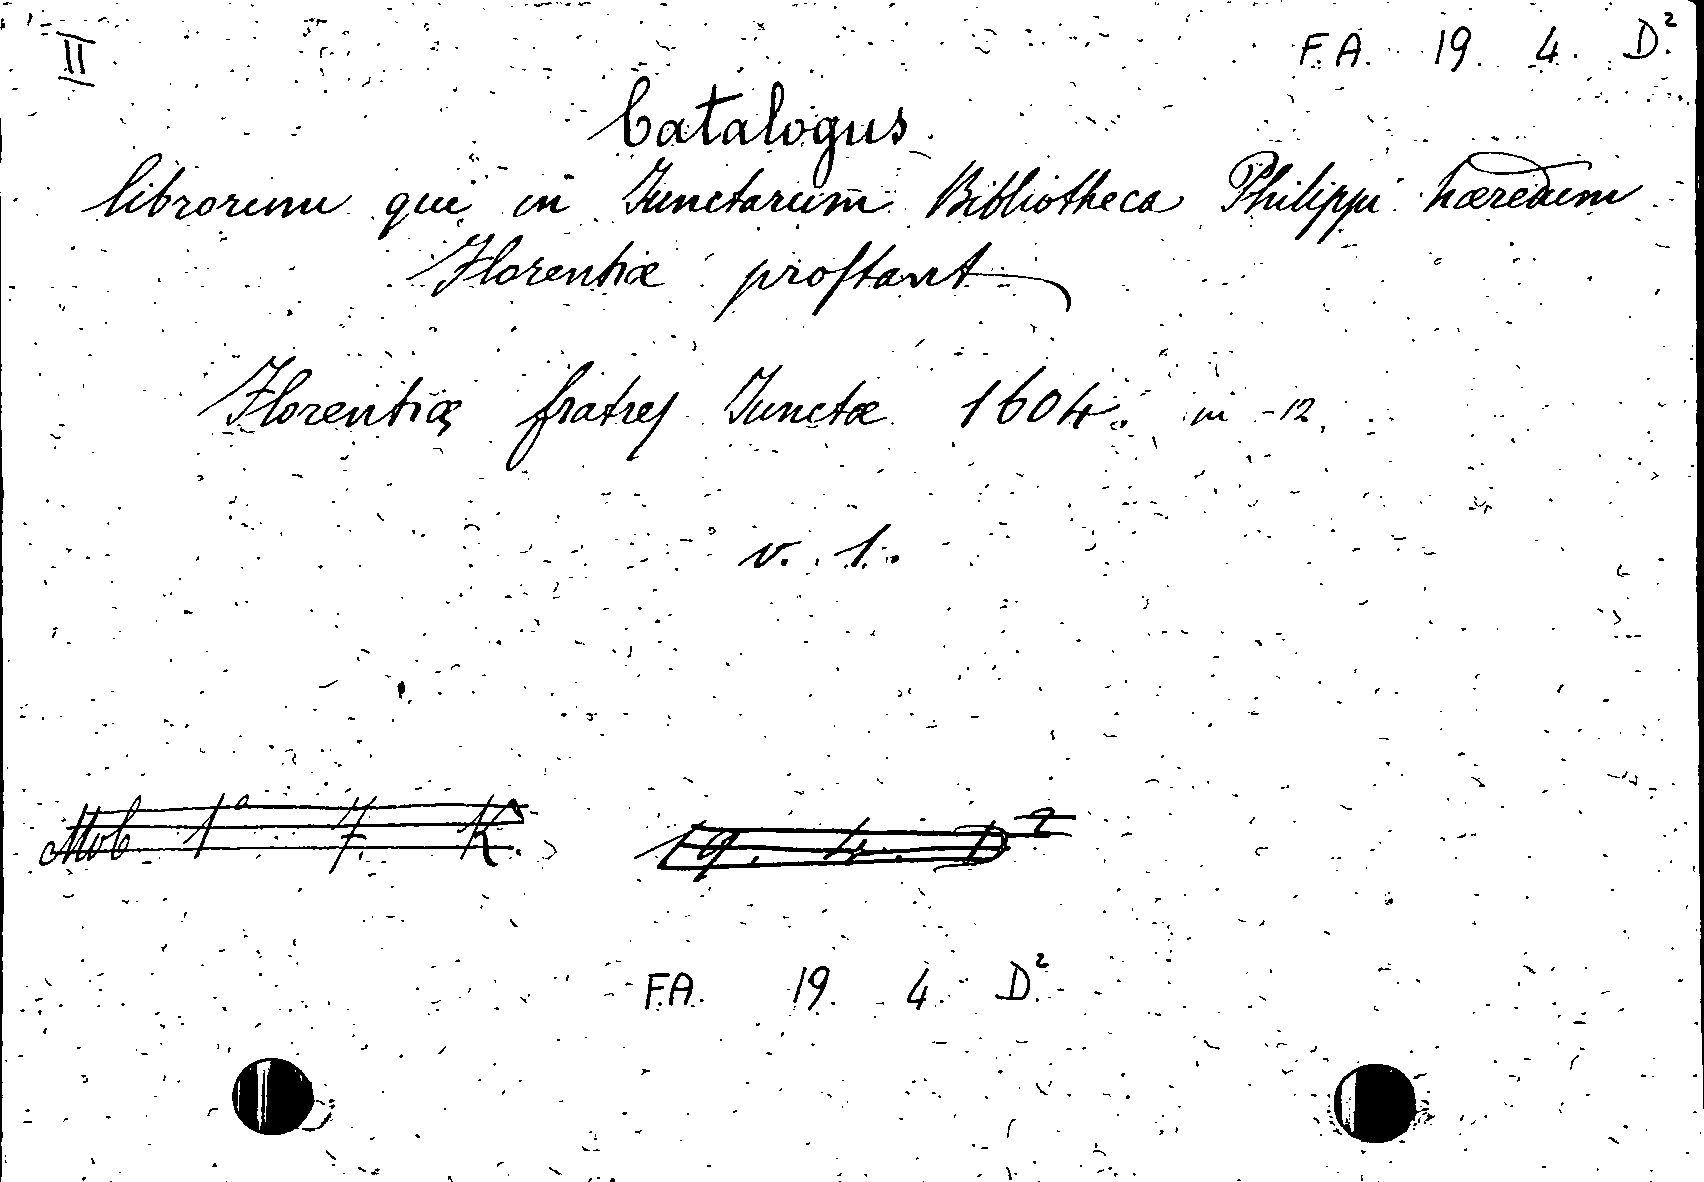 II F.A. 19. 4. D.²
Catalogus
librorum qui in Junctarum Bibliotheca Philippi hæredum
Florentiæ prostant
Florentiæ fratres Junctæ 1604. in -12.
v. 1.
Mob 1ª 7. K. 19. 4. D²
F.A. 19. 4. D.²